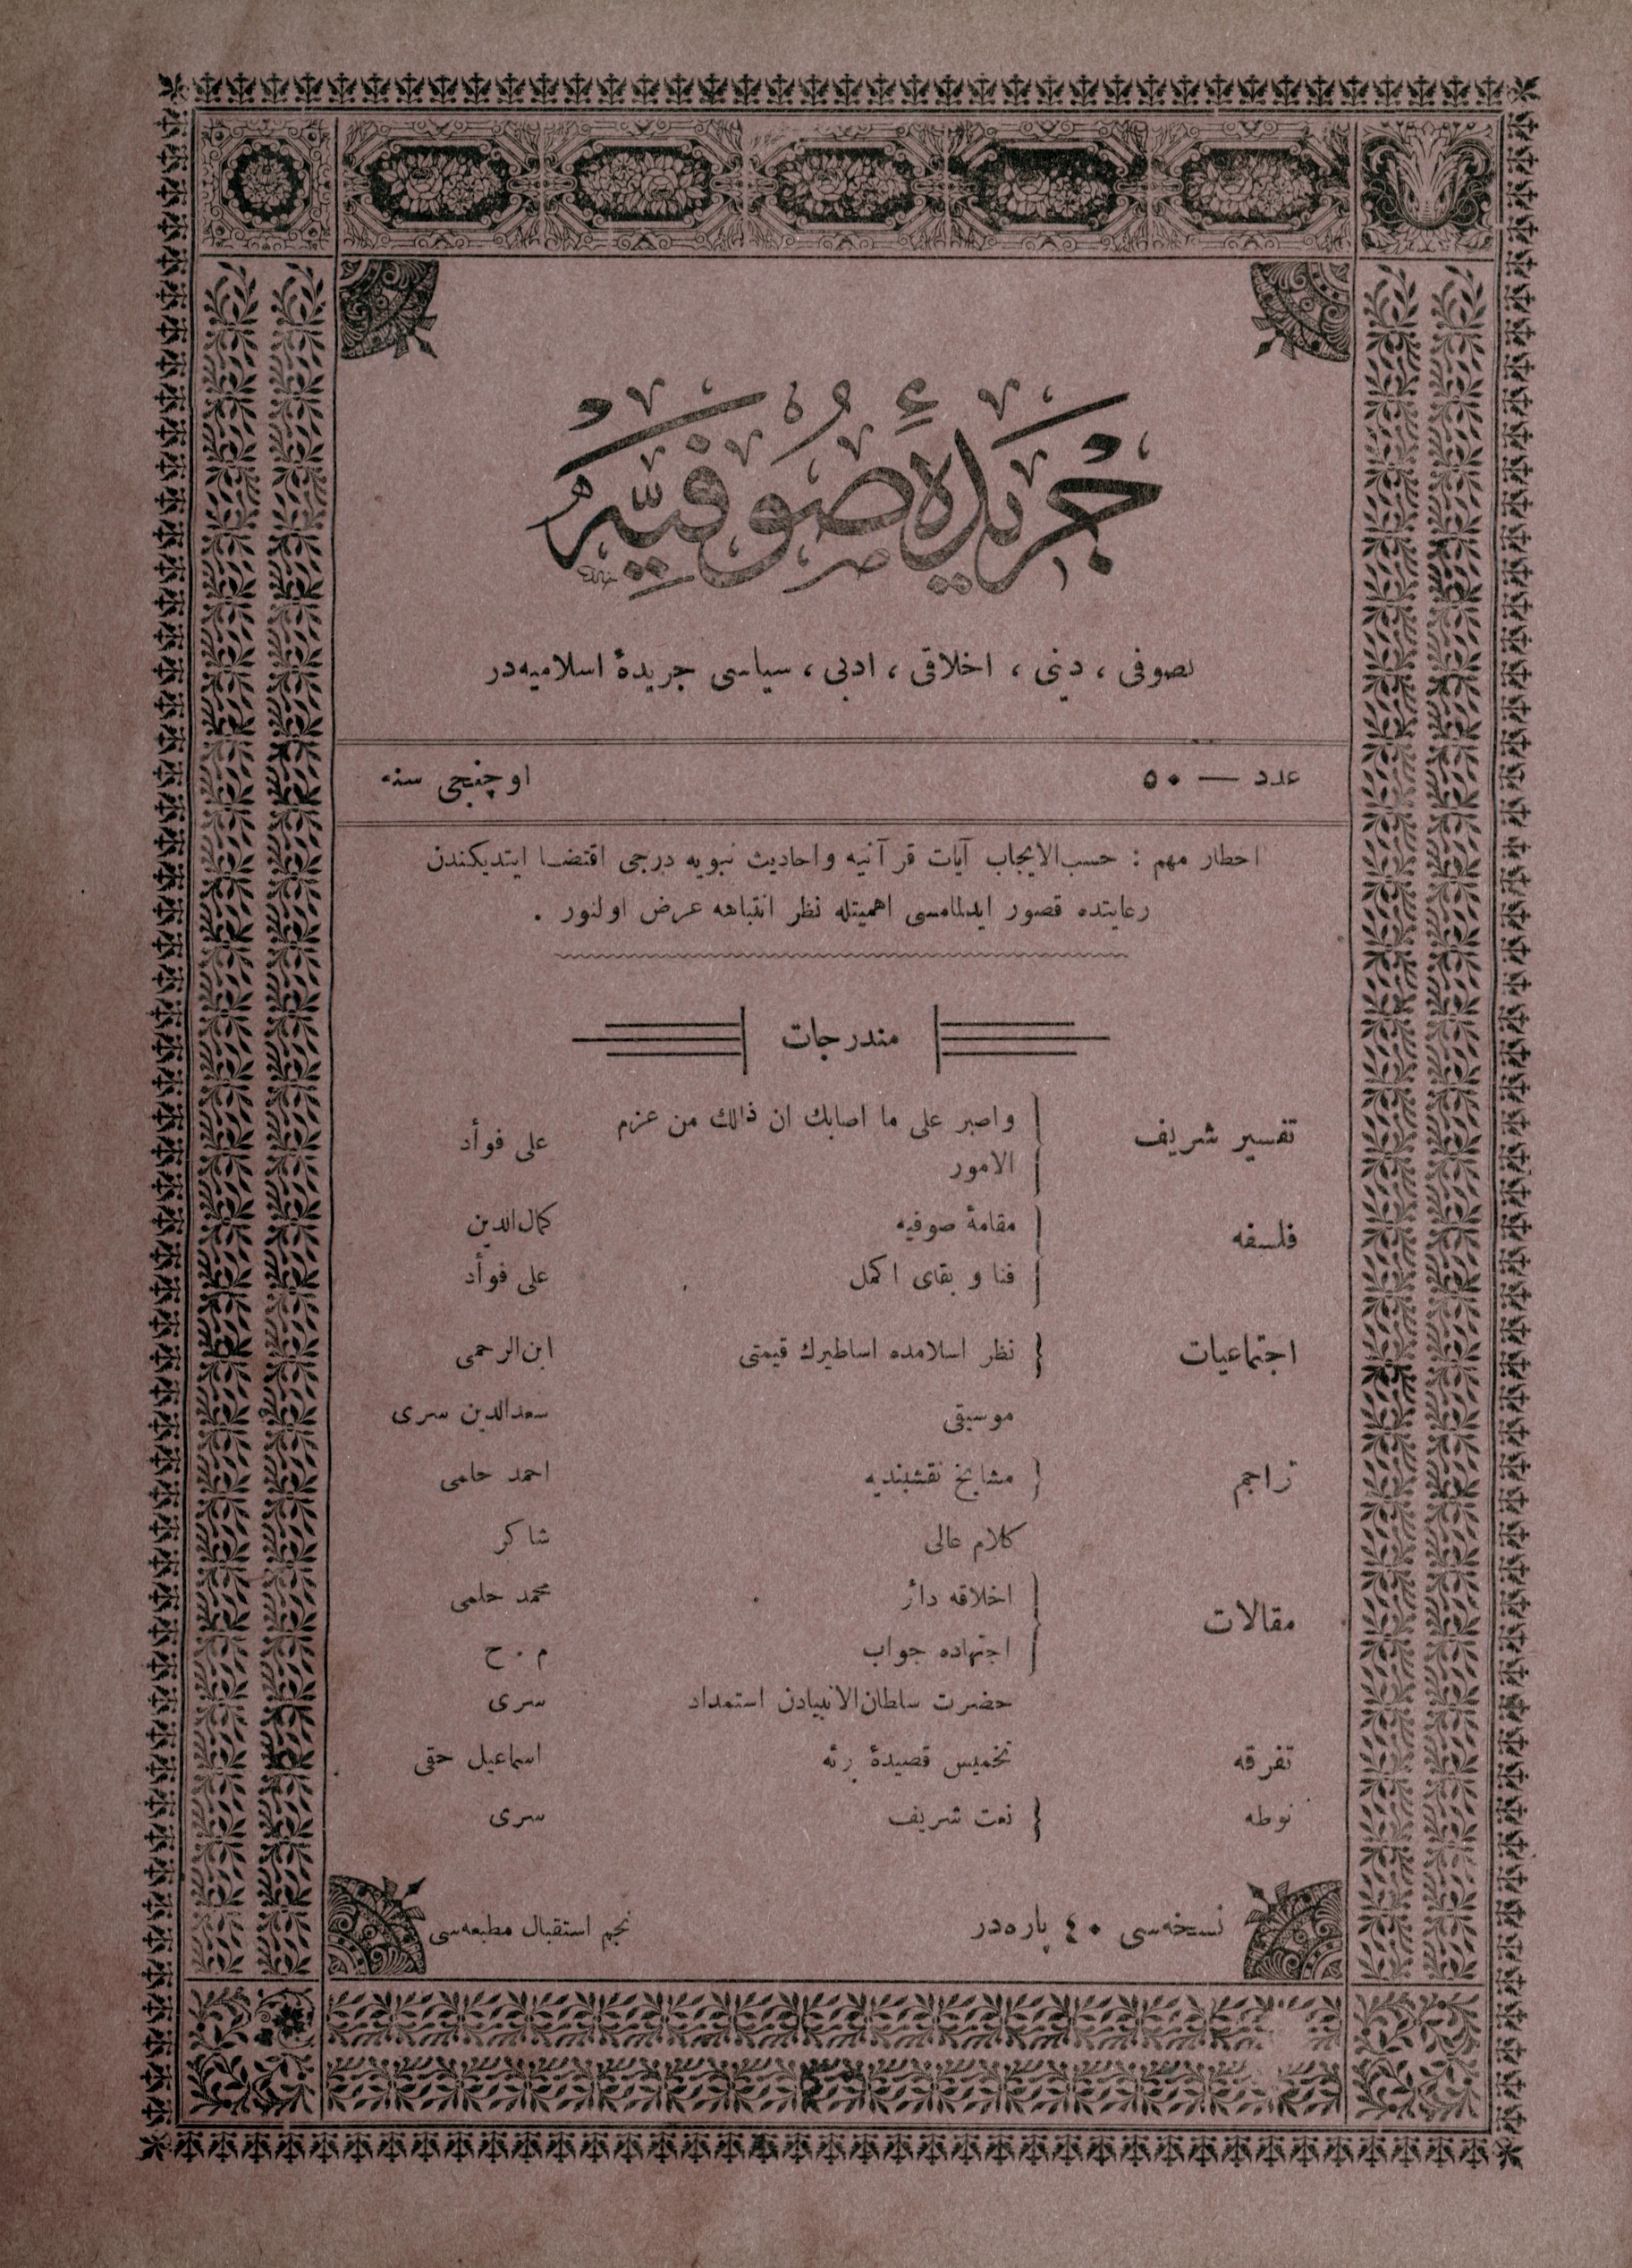 جريدۀ صوفيه
تصوفى ، دينى ، اخلاقى ، ادبى ، سياسى جريدۀ اسلاميه‌در
عدد — ٥٠ اوچنجى سنه
احطار مهم : حسب‌الايجاب آيات قرآنيه واحاديث نبويه درجى اقتضا ايتديكندن
رعايتده قصور ايدلمامسى اهميتله نظر انتباهه عرض اولنور .
مندرجات
تفسير شريف واصبر على ما اصابك ان ذالك من عزم الامور على فوأد
فلسفه مقامۀ صوفيه كمال‌الدين
فنا و بقاى اكمل على فوأد
اجتماعيات نظر اسلامده اساطيرك قيمتى ابن‌الرحمى
موسيقى سعدالدين سرى
تراجم مشايخ نقشبنديه احمد حلمى
كلام عالى شاكر
مقالات اخلاقه دائر محمد حلمى
اجتهاده جواب م . ح
حضرت سلطان‌الانبيادن استمداد سرى
تفرقه تخميس قصيدۀ برئه اسماعيل حقى
نوطه نعت شريف سرى
نسخه‌سى ٤٠ پاره‌در نجم استقبال مطبعه‌سى